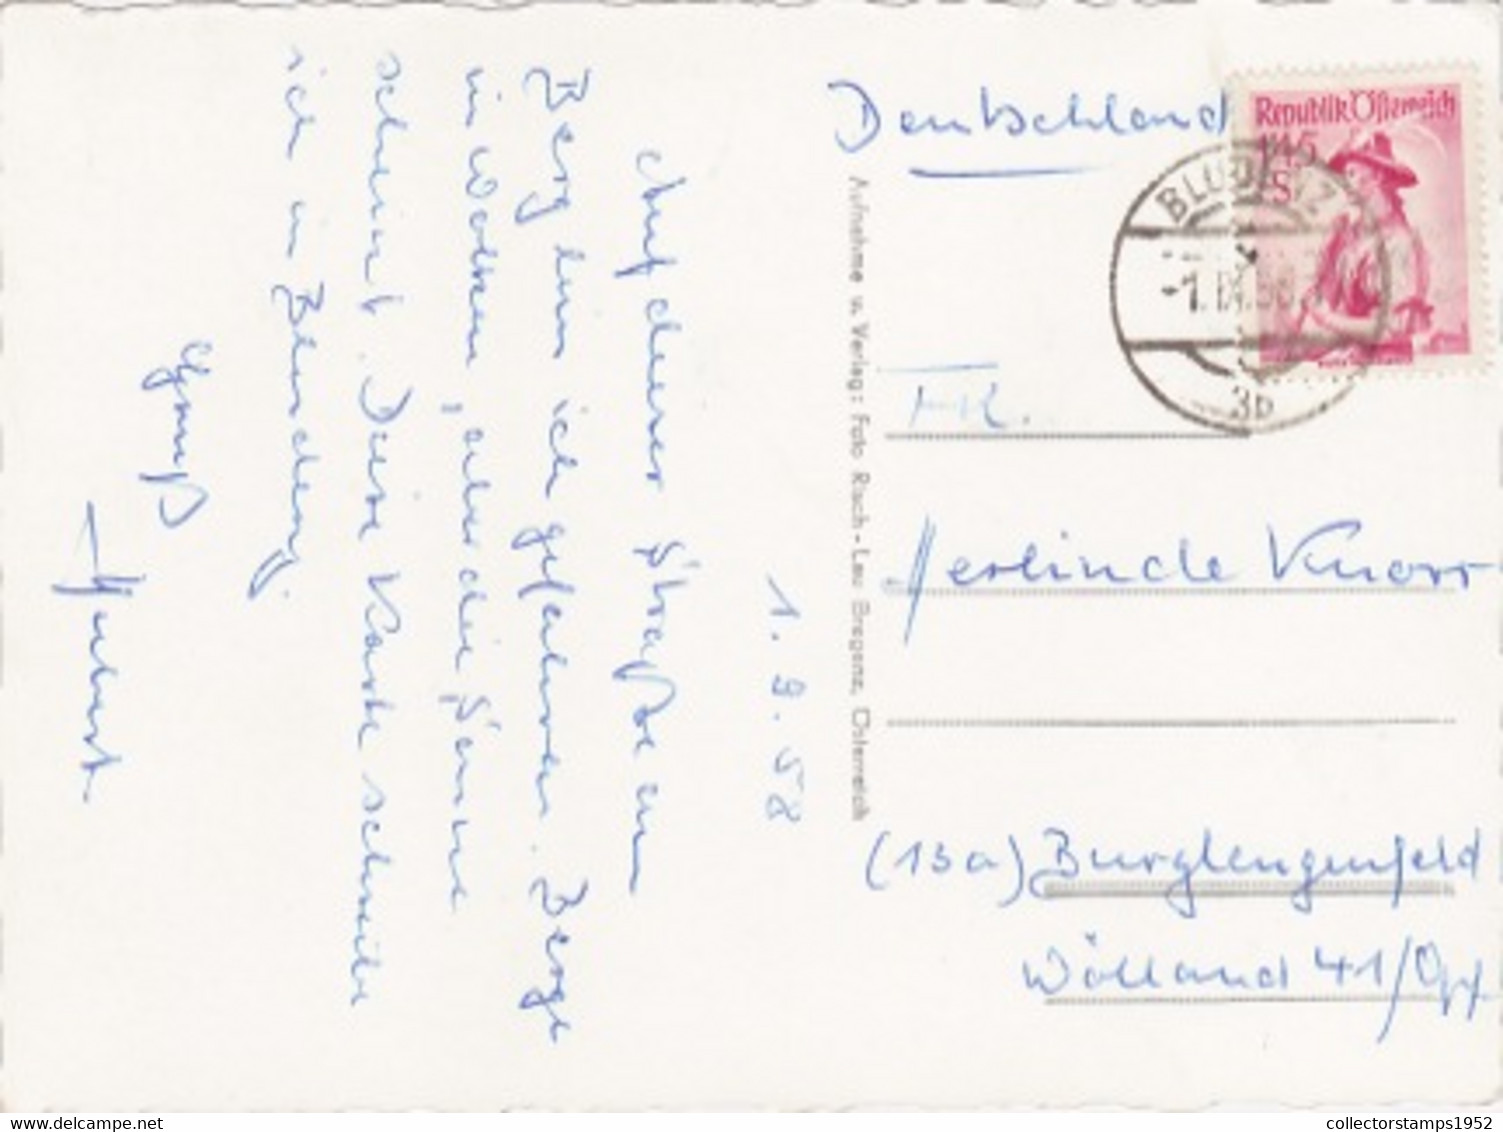 1. 9. 58
Auf dieser Straße am
Berg bin ich gefahren. Berge
in Wolken, aber die Sonne
scheint. Diese Karte schreibe
ich in Bludenz.
Gruß
Herbert
Aufnahme u. Verlag: Foto Risch-Lau Bregenz, Österreich
Deutschland
Republik Österreich
1'45
S
BLUDENZ
-1.IX.58
3b
Frl.
Herlinde Knorr
(13a) Burglengenfeld
Wölland 41/Opf
delcampe.net
collectorstamps1952